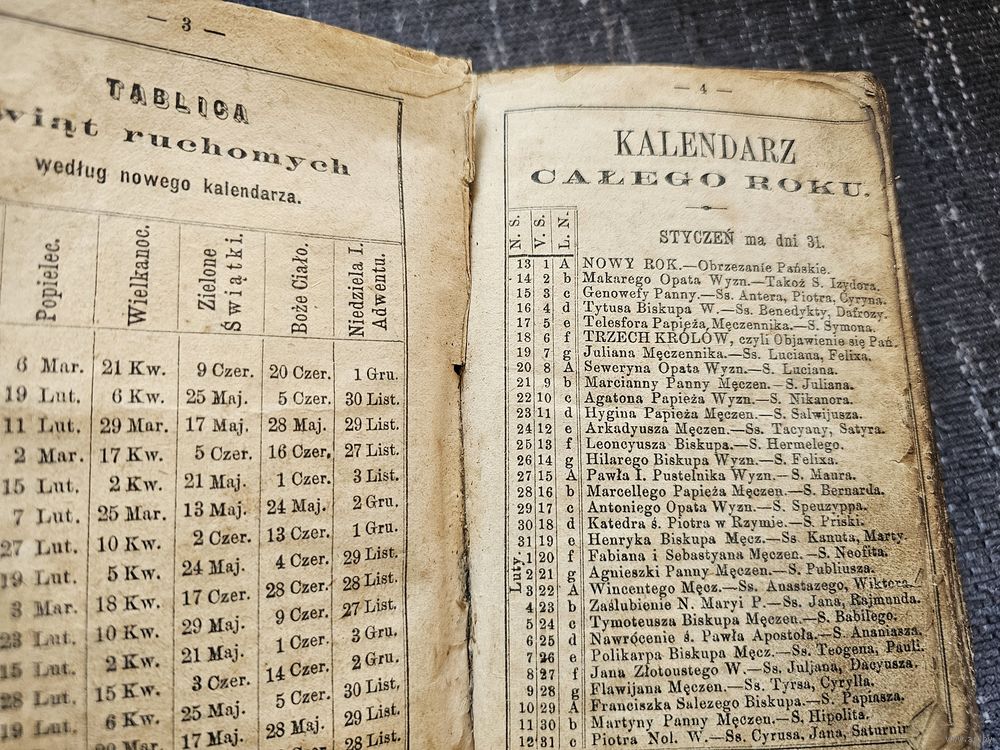 — 3 —
TABLICA
wiąt ruchomych
według nowego kalendarza.
Popielec. Wielkanoc. Zielone Świątki. Boże Ciało. Niedziela I. Adwentu.
6 Mar. 21 Kw. 9 Czer. 20 Czer. 1 Gru.
19 Lut. 6 Kw. 25 Maj. 5 Czer. 30 List.
11 Lut. 29 Mar. 17 Maj. 28 Maj. 29 List.
2 Mar. 17 Kw. 5 Czer. 16 Czer. 27 List.
15 Lut. 2 Kw. 21 Maj. 1 Czer. 3 List.
7 Lut. 25 Mar. 13 Maj. 24 Maj. 2 Gru.
27 Lut. 10 Kw. 2 Czer. 13 Czer. 1 Gru.
19 Lut. 5 Kw. 24 Maj. 4 Czer. 29 List.
3 Mar. 18 Kw. 17 Czer. 28 Czer. 28 List.
23 Lut. 10 Kw. 29 Maj. 9 Czer. 27 List.
15 Lut. 2 Kw. 21 Maj. 1 Czer. 3 Gru.
28 Lut. 15 Kw. 3 Czer. 14 Czer. 2 Gru.
19 Lut. 6 Kw. 25 Maj. 5 Czer. 30 List.
Mar. 17 Maj. 28 Maj. 29 List.
28 List.
— 4 —
KALENDARZ
CAŁEGO ROKU.
N. S. V. S. L. N. STYCZEŃ ma dni 31.
13 1 A NOWY ROK.—Obrzezanie Pańskie.
14 2 b Makarego Opata Wyzn.—Takoż S. Izydora.
15 3 c Genowefy Panny.—Ss. Antera, Piotra, Cyryna.
16 4 d Tytusa Biskupa W.—Ss. Benedykty, Dafrozy.
17 5 e Telesfora Papieża, Męczennika.—S. Symona.
18 6 f TRZECH KRÓLÓW, czyli Objawienie się Pań.
19 7 g Juliana Męczennika.—Ss. Luciana, Felixa.
20 8 A Seweryna Opata Wyzn.—S. Luciana.
21 9 b Marcianny Panny Męczen.—S. Juliana.
22 10 c Agatona Papieża Wyzn.—S. Nikanora.
23 11 d Hygina Papieża Męczen.—S. Salwijusza.
24 12 e Arkadyusza Męczen.—Ss. Tacyany, Satyra.
25 13 f Leoncyusza Biskupa.—S. Hermelego.
26 14 g Hilarego Biskupa Wyzn.—S. Felixa.
27 15 A Pawła I. Pustelnika Wyzn.—S. Maura.
28 16 b Marcellego Papieża Męczen.—S. Bernarda.
29 17 c Antoniego Opata Wyzn.—S. Speuzyppa.
30 18 d Katedra ś. Piotra w Rzymie.—S. Priski.
31 19 e Henryka Biskupa Męcz.—Ss. Kanuta, Marty.
Luty. 1 20 f Fabiana i Sebastyana Męczen.—S. Neofita.
2 21 g Agnieszki Panny Męczen.—S. Publiusza.
3 22 A Wincentego Męcz.—Ss. Anastazego, Wiktora.
4 23 b Zaślubienie N. Maryi P.—Ss. Jana, Rajmunda.
5 24 c Tymoteusza Biskupa Męczen.—S. Babilego.
6 25 d Nawrócenie ś. Pawła Apostoła.—S. Ananiasza.
7 26 e Polikarpa Biskupa Męcz.—Ss. Teogena, Pauli.
8 27 f Jana Złotoustego W.—Ss. Juljana, Dacyusza.
9 28 g Flawijana Męczen.—Ss. Tyrsa, Cyrylla.
10 29 A Franciszka Salezego Biskupa.—S. Papiasza.
11 30 b Martyny Panny Męczen.—S. Hipolita.
12 31 c Piotra Nol. W.—Ss. Cyrusa, Jana, Saturnir